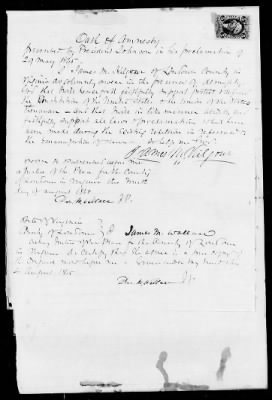 Oath of Amnesty
prescribed by President Johnson in his proclamation of
29 May 1865.
I James M. Kilgour of Loudoun County in
Virginia do solemnly swear in the presence of Almighty
God that I will henceforth faithfully support protect & defend
the Constitution of the United States & the Union of the States
thereunder — and that I will in like manner abide by and
faithfully support all laws & proclamations which have
been made during the existing rebellion in reference to
the emancipation of slaves So help me God
James M Kilgour
sworn to & subscribed before me
a Justice of the Peace for the County
of Loudoun in Virginia this
day of August 1865
J.P.
State of Virginia
County of Loudoun I James M. Wallace
Justice of the Peace for the County of Loudoun
in Virginia do certify that the above is a true copy of
the original Given under my hand this
August 1865.
J.P.